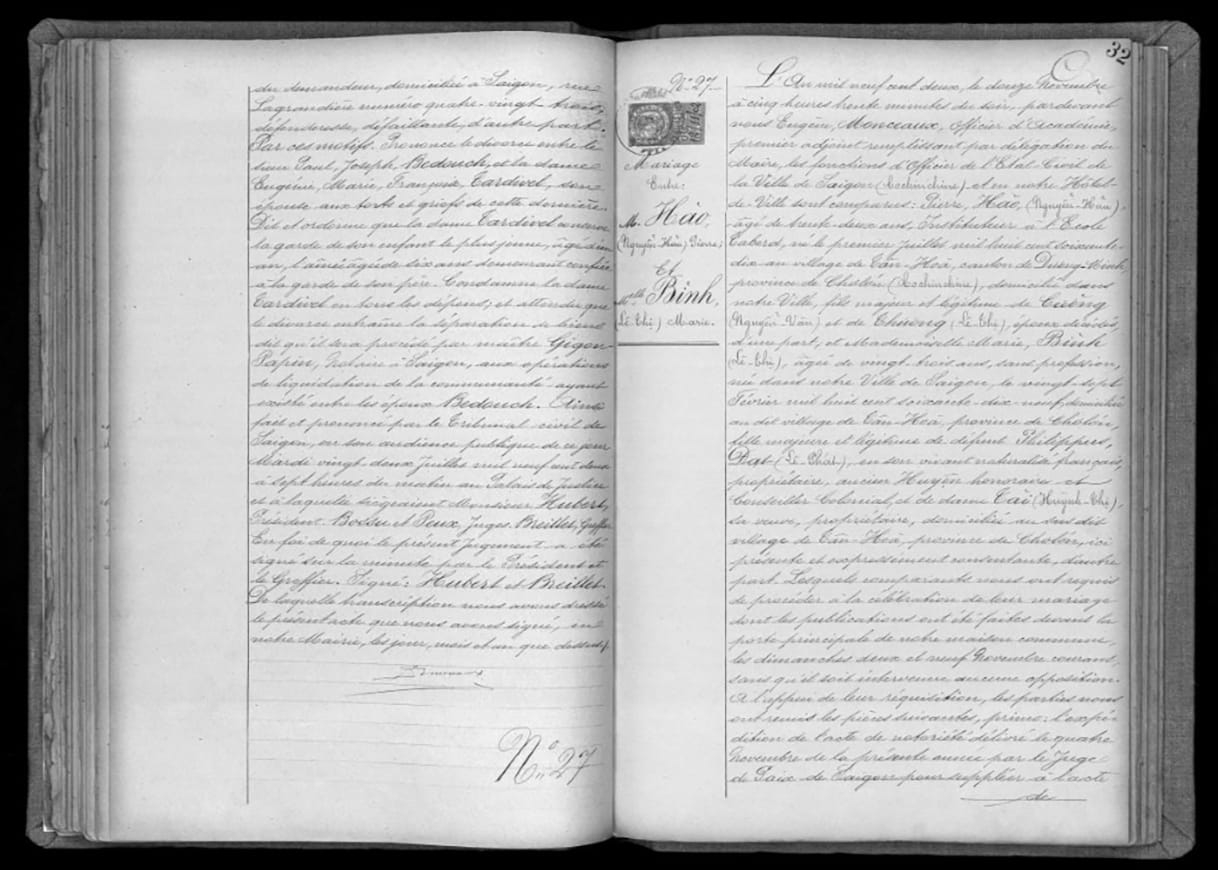 du demandeur, domiciliée à Saigon, rue
Lagrandière numéro quatre-vingt trois,
défenderesse, défaillante, d'autre part.
Par ces motifs. Prononce le divorce entre le
sieur Paul, Joseph, Bedouch, et la dame
Eugénie, Marie, Françoise, Tardivel, son
épouse aux torts et griefs de cette dernière.
Dit et ordonne que la dame Tardivel conserve
la garde de son enfant le plus jeune, âgé d'un
an, l'aîné âgé de six ans demeurant confié
à la garde de son père. Condamne la dame
Tardivel en tous les dépens; et attendu que
le divorce entraîne la séparation de biens
dit qu'il sera procédé par maître Gigon-
Papin, Notaire à Saigon, aux opérations
de liquidation de la communauté ayant
existé entre les époux Bedouch. Ainsi
fait et prononcé par le Tribunal civil de
Saigon, en son audience publique de ce jour
Mardi vingt-deux Juillet mil neuf cent deux
à sept heures du matin au Palais de Justice
et à laquelle siégeaient Monsieur Hubert,
Président. Bossu et Peux, Juges. Breillet, Greffier
En foi de quoi le présent Jugement a été
signé sur la minute par le Président et
le Greffier. Signé: Hubert et Breillet.
De laquelle transcription nous avons dressé
le présent acte que nous avons signé, en
notre Mairie, les jour, mois et an que dessus./.
N° 27
32
N° 27
Mariage
Entre:
M. Hào,
(Nguyễn-Hữu) Pierre;
Et
Melle Binh,
(Lê-Thị) Marie.
L'An mil neuf cent deux, le douze Novembre
à cinq heures trente minutes du soir, pardevant
nous Eugène, Monceaux, Officier d'Académie,
premier adjoint remplissant par délégation du
Maire, les fonctions d'Officier de l'Etat-Civil de
la Ville de Saigon (Cochinchine) et en notre Hôtel-
de-Ville sont comparus: Pierre, Hào, (Nguyễn-Hữu),
âgé de trente-deux ans, Instituteur à l'Ecole
Taberd, né le premier Juillet mil huit cent soixante-
dix au village de Tân-Hoà, canton de Dương-Minh,
province de Cholon (Cochinchine), domicilié dans
notre Ville, fils majeur et légitime de
(Nguyễn-Văn) et de Thuong (Lê-Thị), époux décédés,
d'une part, et Mademoiselle Marie, Binh
(Lê-Thị), âgée de vingt-trois ans, sans profession,
née dans notre Ville de Saigon, le vingt-sept
Février mil huit cent soixante-dix-neuf, domiciliée
au dit village de Tân-Hoà, province de Cholon,
fille majeure et légitime de défunt Philippe,
Dat (Lê-Phát), en son vivant naturalisé français,
propriétaire, ancien Huyện honoraire et
Conseiller Colonial, et de dame Tài (Huỳnh-Thị),
sa veuve, propriétaire, domiciliée au sus dit
village de Tân-Hoà, province de Cholon, ici
présente et expressément consentante, d'autre
part. Lesquels comparants nous ont requis
de procéder à la célébration de leur mariage
dont les publications ont été faites devant la
porte principale de notre maison commune,
les dimanches deux et neuf Novembre courant,
sans qu'il soit intervenu aucune opposition.
A l'appui de leur réquisition, les parties nous
ont remis les pièces suivantes, primo: l'expé-
dition de l'acte de notoriété délivré le quatre
Novembre de la présente année par le Juge
de Paix de Saigon pour suppléer à l'acte
de